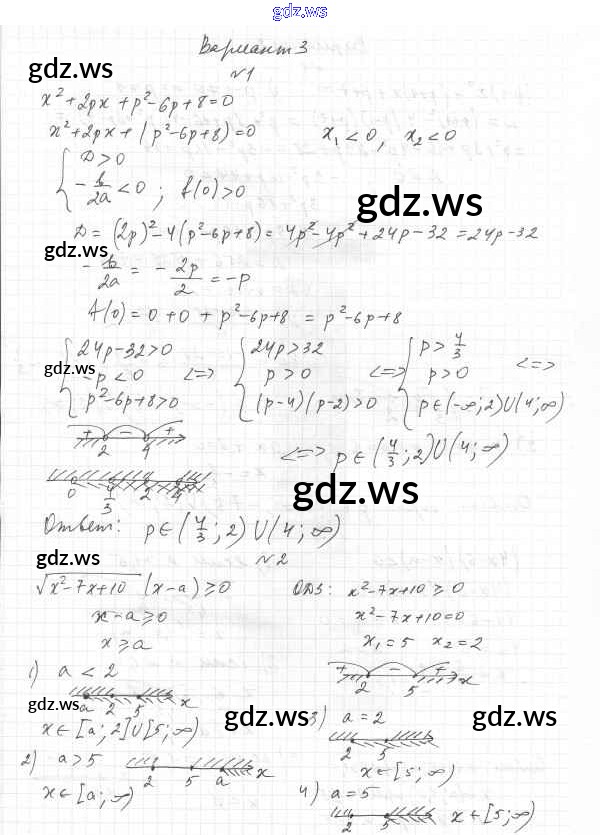 gdz.ws
Вариант 3
gdz.ws
№1
x² + 2px + p² - 6p + 8 = 0
x² + 2px + (p² - 6p + 8) = 0    x₁ < 0, x₂ < 0
{ D > 0
-b/2a < 0 ; f(0) > 0
gdz.ws
D = (2p)² - 4(p² - 6p + 8) = 4p² - 4p² + 24p - 32 = 24p - 32
gdz.ws
-b/2a = -2p/2 = -p
f(0) = 0 + 0 + p² - 6p + 8 = p² - 6p + 8
{ 24p - 32 > 0    { 24p > 32    { p > 4/3
gdz.ws
-p < 0 <=> p > 0 <=> p > 0 <=>
p² - 6p + 8 > 0    (p-4)(p-2) > 0    p ∈ (-∞; 2) U (4; ∞)
+ - +
2 4
<=> p ∈ (4/3; 2) U (4; ∞)
0 4/3 2 4
gdz.ws
Ответ: p ∈ (4/3; 2) U (4; ∞)
gdz.ws
№2
√(x² - 7x + 10) (x - a) ≥ 0    ОДЗ: x² - 7x + 10 ≥ 0
x - a ≥ 0    x² - 7x + 10 = 0
x ≥ a    x₁ = 5 x₂ = 2
+ - +
2 5 x
1) a < 2
a 2 5 x
gdz.ws
x ∈ [a; 2] U [5; ∞)
gdz.ws
3) a = 2
gdz.ws
2 5
x ∈ [5; ∞)
2) a > 5
2 5 a x
x ∈ [a; ∞)
4) a = 5
2 5
x ∈ [5; ∞)
gdz.ws